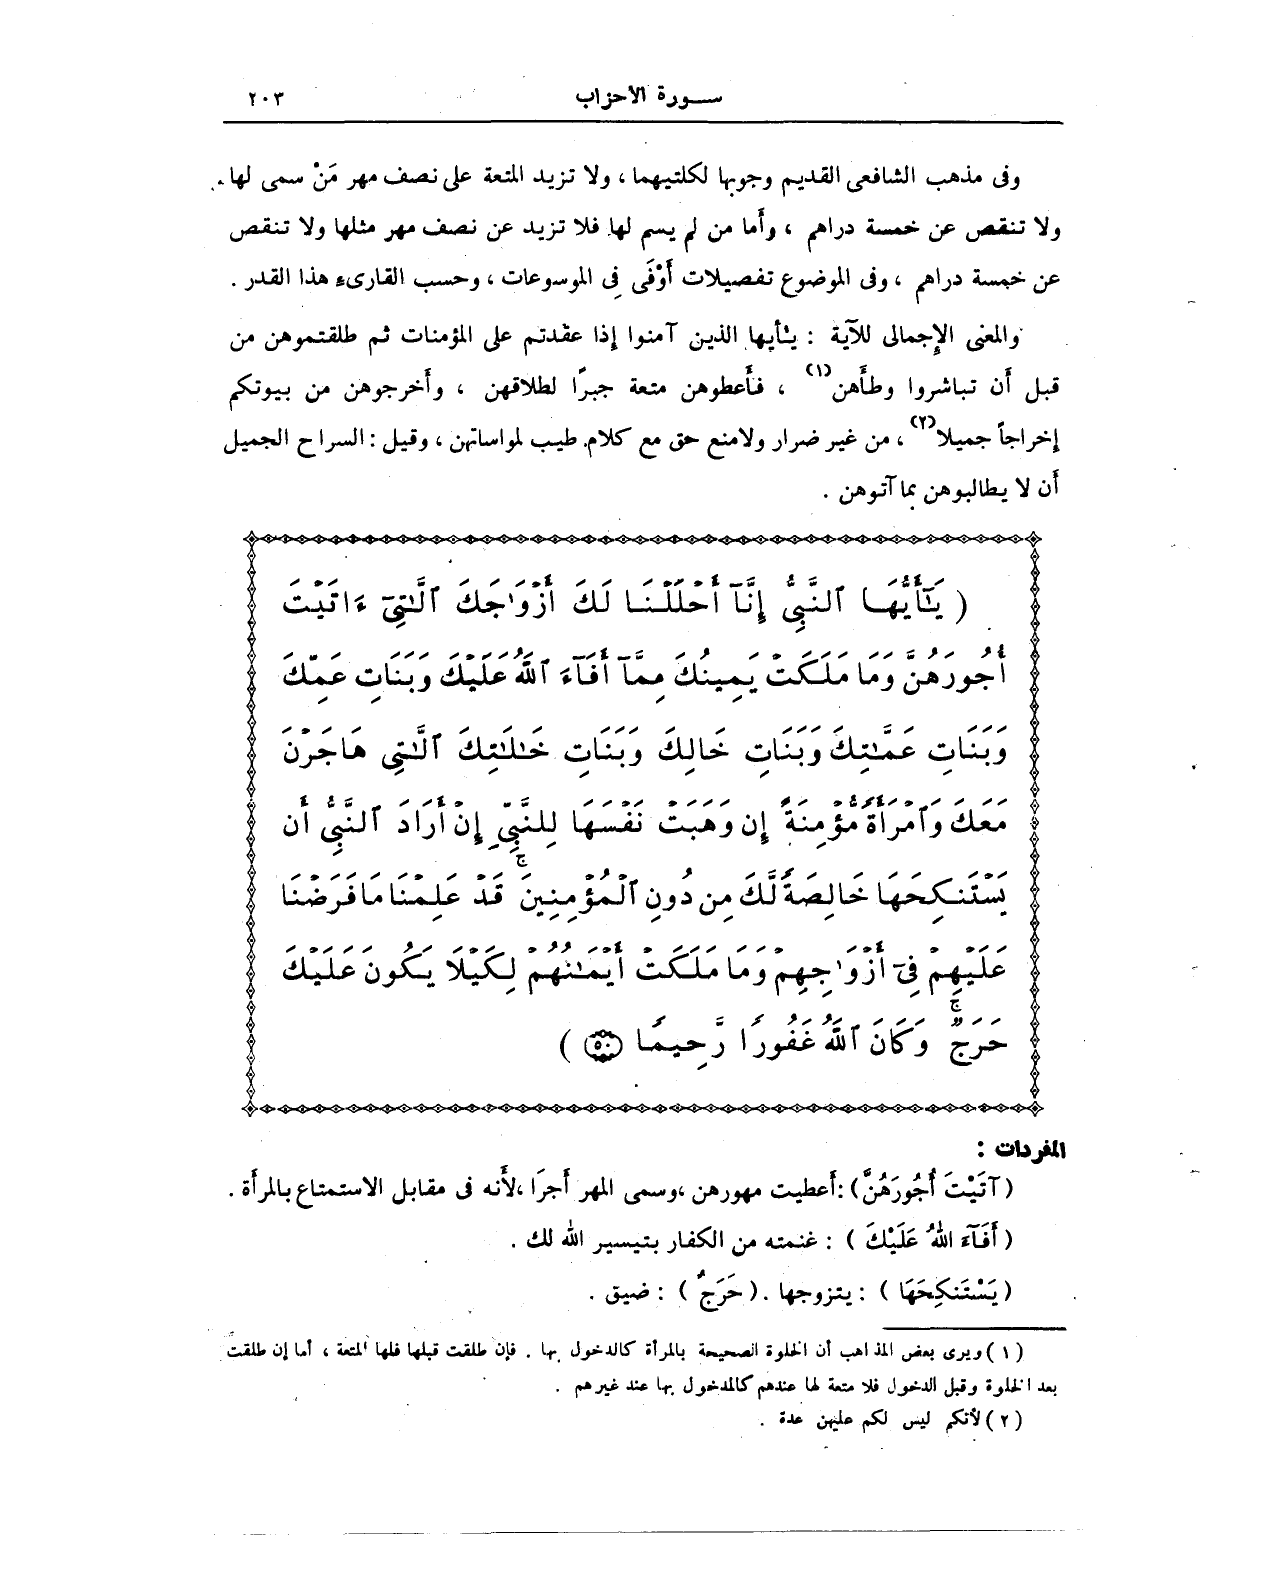 سورة الأحزاب ٢٠٣
وفى مذهب الشافعى القديم وجوبها لكلتيهما ، ولا تزيد المتعة على نصف مهر مَنْ سمى لها ،
ولا تنقص عن خمسة دراهم ، وأَما من لم يسم لها فلا تزيد عن نصف مهر مثلها ولا تنقص
عن خمسة دراهم ، وفى الموضوع تفصيلات أَوْفَى فى الموسوعات ، وحسب القارىء هذا القدر .
والمعنى الإِجمالى للآية : يـٰأيها الذين آمنوا إذا عقدتم على المؤمنات ثم طلقتموهن من
قبل أَن تباشروا وطأَهن(١) ، فأَعطوهن متعة جبرًا لطلاقهن ، وأَخرجوهن من بيوتكم
إخراجاً جميلا(٢) ، من غير ضرار ولامنع حق مع كلام طيب لمواساتهن ، وقيل : السراح الجميل
أَن لا يطالبوهن بما آتوهن .
( يَـٰٓأَيُّهَا ٱلنَّبِىُّ إِنَّآ أَحْلَلْنَا لَكَ أَزْوَٰجَكَ ٱلَّـٰتِىٓ ءَاتَيْتَ
أُجُورَهُنَّ وَمَا مَلَكَتْ يَمِينُكَ مِمَّآ أَفَآءَ ٱللَّهُ عَلَيْكَ وَبَنَاتِ عَمِّكَ
وَبَنَاتِ عَمَّـٰتِكَ وَبَنَاتِ خَالِكَ وَبَنَاتِ خَـٰلَـٰتِكَ ٱلَّـٰتِى هَاجَرْنَ
مَعَكَ وَٱمْرَأَةً مُّؤْمِنَةً إِن وَهَبَتْ نَفْسَهَا لِلنَّبِىِّ إِنْ أَرَادَ ٱلنَّبِىُّ أَن
يَسْتَنكِحَهَا خَالِصَةً لَّكَ مِن دُونِ ٱلْمُؤْمِنِينَ ۚ قَدْ عَلِمْنَا مَا فَرَضْنَا
عَلَيْهِمْ فِىٓ أَزْوَٰجِهِمْ وَمَا مَلَكَتْ أَيْمَـٰنُهُمْ لِكَيْلَا يَكُونَ عَلَيْكَ
حَرَجٌ ۗ وَكَانَ ٱللَّهُ غَفُورًا رَّحِيمًا ﴿٥٠﴾ )
المفردات :
( آتَيْتَ أُجُورَهُنَّ ) : أَعطيت مهورهن ، وسمى المهر أَجرًا ، لأَنه فى مقابل الاستمتاع بالمرأة .
( أَفَآءَ اللهُ عَلَيْكَ ) : غنمته من الكفار بتيسير الله لك .
( يَسْتَنكِحَهَا ) : يتزوجها . ( حَرَجٌ ) : ضيق .
( ١ ) ويرى بعض المذاهب أن الخلوة الصحيحة بالمرأة كالدخول بها . فإن طلقت قبلها فلها المتعة ، أما إن طلقت
بعد الخلوة وقبل الدخول فلا متعة لها عندهم كالمدخول بها عند غيرهم .
( ٢ ) لأنكم ليس لكم عليهن عدة .